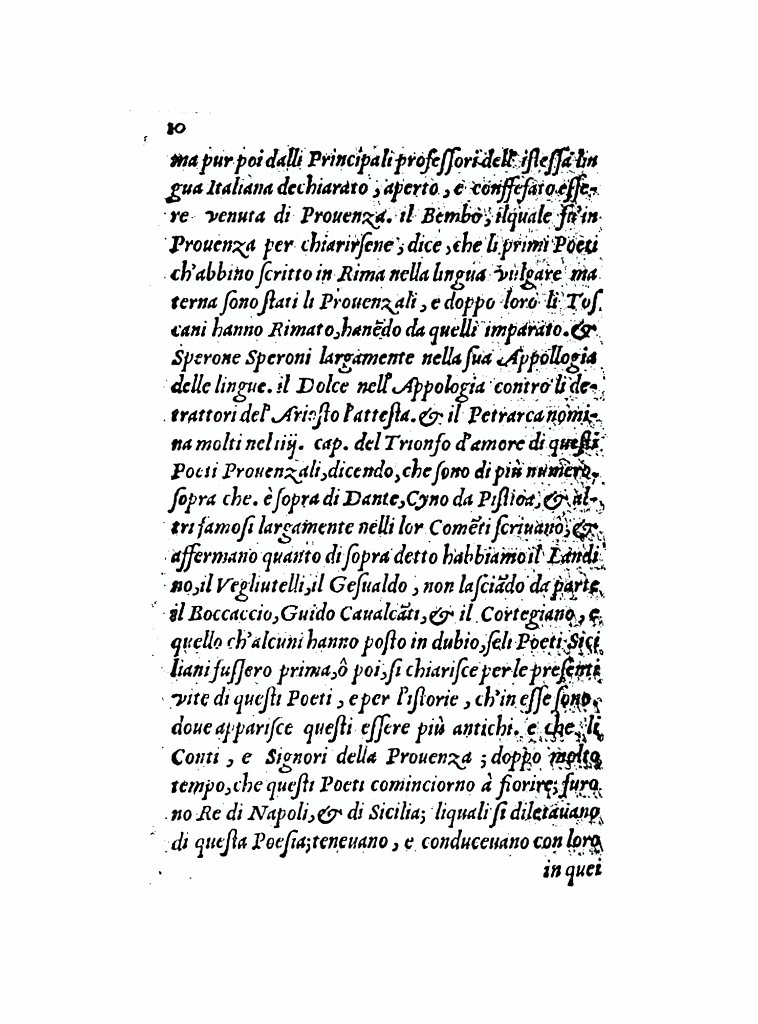 10
ma pur poi dalli Principali professori dell' istessa lin
gua Italiana dechiarato, aperto, e conffesato esse-
re venuta di Prouenza. il Bembo, ilquale fù in
Prouenza per chiarirsene, dice, che li primi Poeti
ch'abbino scritto in Rima nella lingua vulgare ma
terna sono stati li Prouenzali, e doppo loro li Tos
cani hanno Rimato, hanēdo da quelli imparato. &
Sperone Speroni largamente nella sua Appollogia
delle lingue. il Dolce nell' Appologia contro li de-
trattori del' Ariosto l'attesta. & il Petrarca nomi-
na molti nel iiij. cap. del Trionfo d'amore di questi
Poeti Prouenzali, dicendo, che sono di più numero,
sopra che. è sopra di Dante, Cyno da Pistioa, & al-
tri famosi largamente nelli lor Comēti scriuano, &
affermano quanto di sopra detto habbiamo il Landi
no, il Vegliutelli, il Gesualdo, non lasciādo da parte
il Boccaccio, Guido Caualcāti, & il Cortegiano, e
quello ch'alcuni hanno posto in dubio, se li Poeti Sici
liani fussero prima, ò poi, si chiarisce per le presenti
vite di questi Poeti, e per l'istorie, ch'in esse sono,
doue apparisce questi essere più antichi. e che li
Conti, e Signori della Prouenza; doppo molto
tempo, che questi Poeti cominciorno à fiorire; furo
no Re di Napoli, & di Sicilia; liquali si diletauano
di questa Poesia; teneuano, e conduceuano con loro
in quei